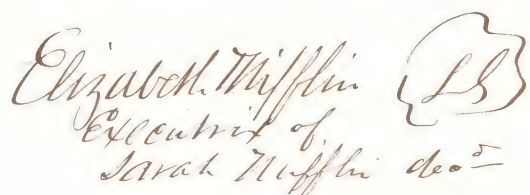 Elizabeth Mifflin LS
Executrix of
Sarah Mifflin decd